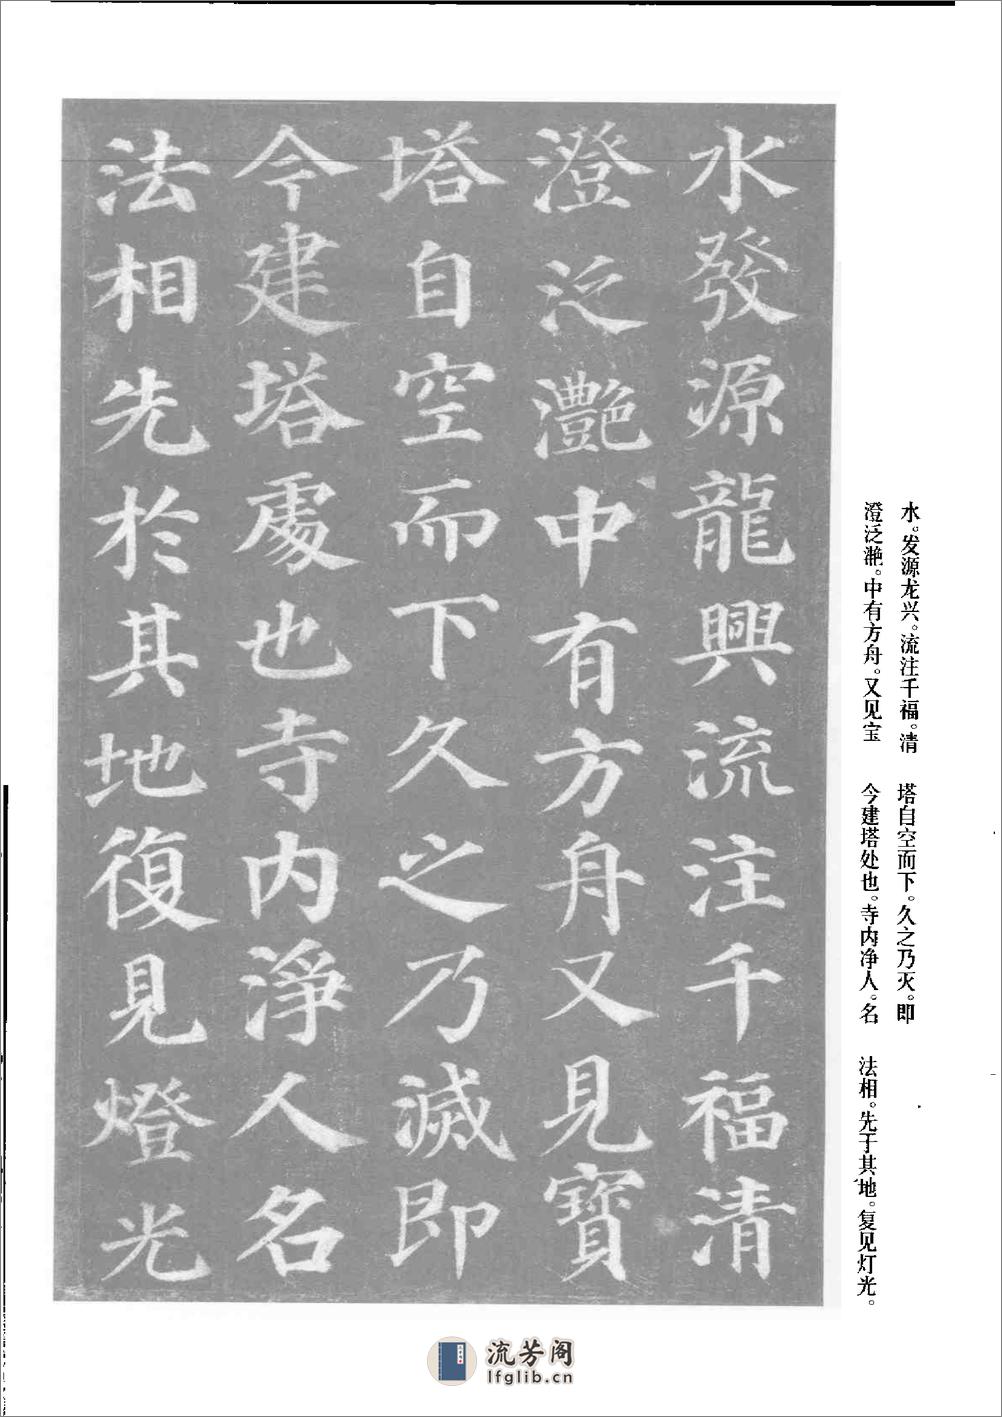 水發源龍興流注千福清
澄泛灔中有方舟又見寶
塔自空而下久之乃滅即
今建塔處也寺內淨人名
法相先於其地復見燈光
水。发源龙兴。流注千福。清
澄泛滟。中有方舟。又见宝
塔自空而下。久之乃灭。即
今建塔处也。寺内净人。名
法相。先于其地。复见灯光。
流芳阁
lfglib.cn